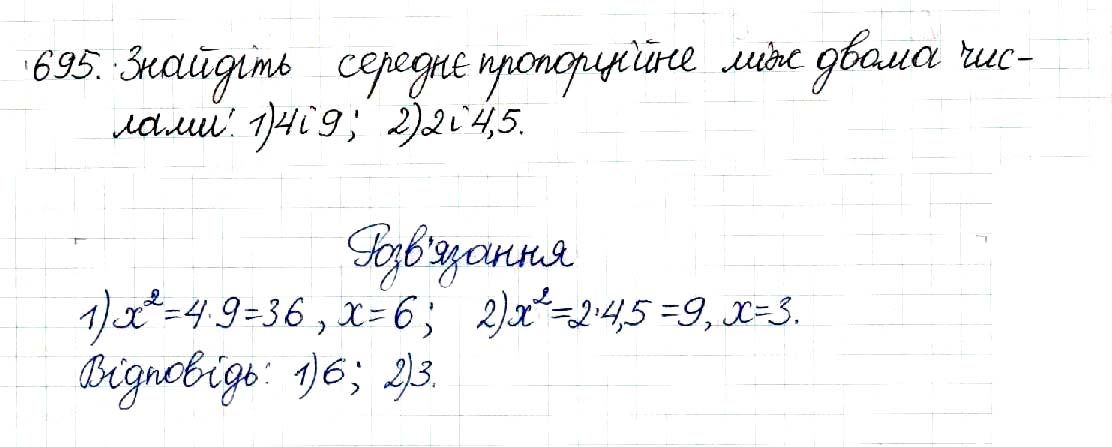 695. Знайдіть середнє пропорційне між двома чис-
лами: 1) 4 і 9; 2) 2 і 4,5.
Розв'язання
1) x²=4·9=36, x=6; 2) x²=2·4,5=9, x=3.
Відповідь: 1) 6; 2) 3.